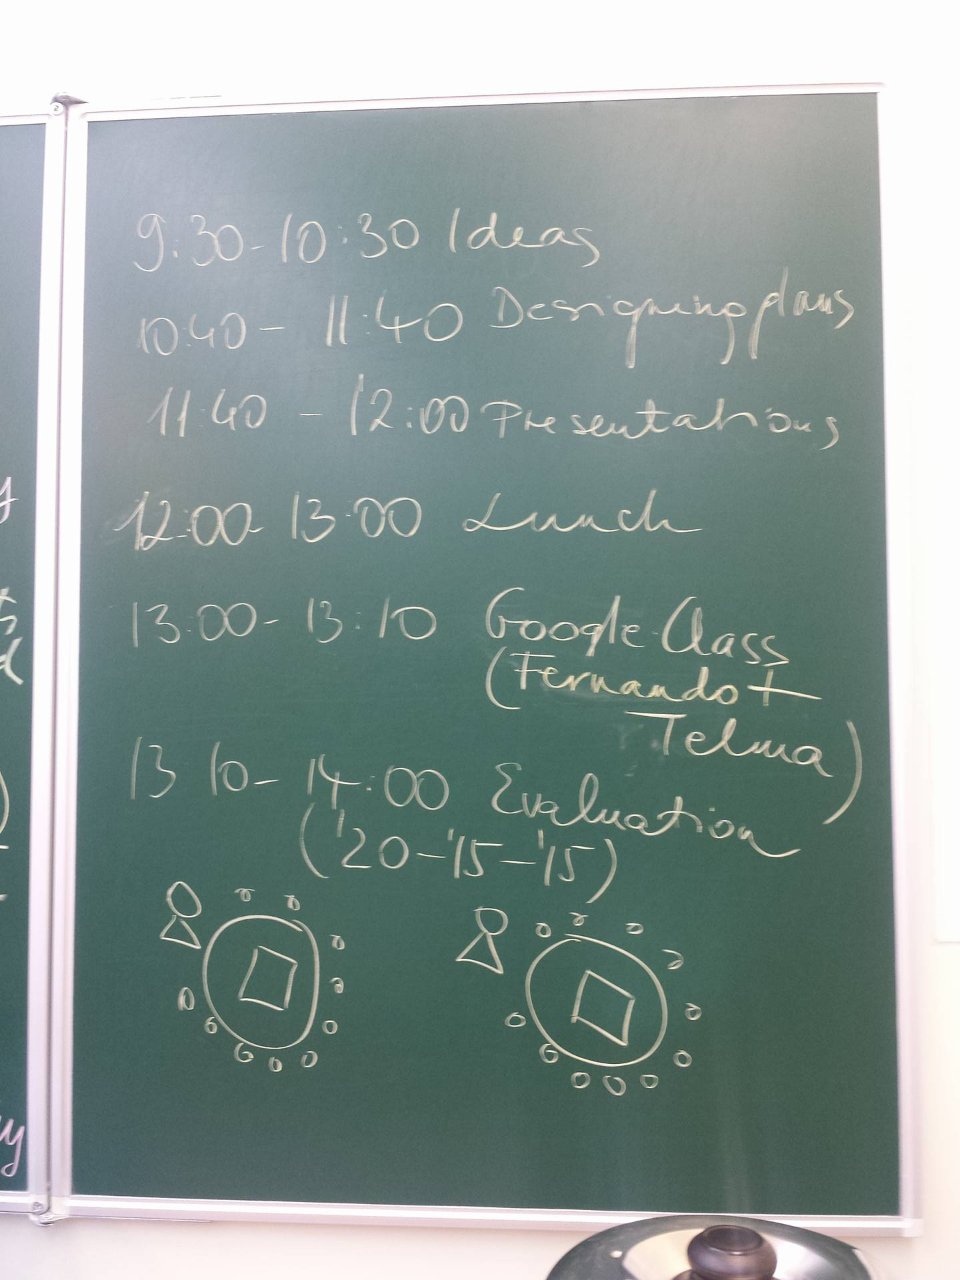 9:30-10:30 Ideas
10:40 - 11:40 Designing plans
11:40 - 12:00 Presentations
12:00-13:00 Lunch
13:00-13:10 Google Class
(Fernando +
Telma)
13 10-14:00 Evaluation
('20-'15-'15)